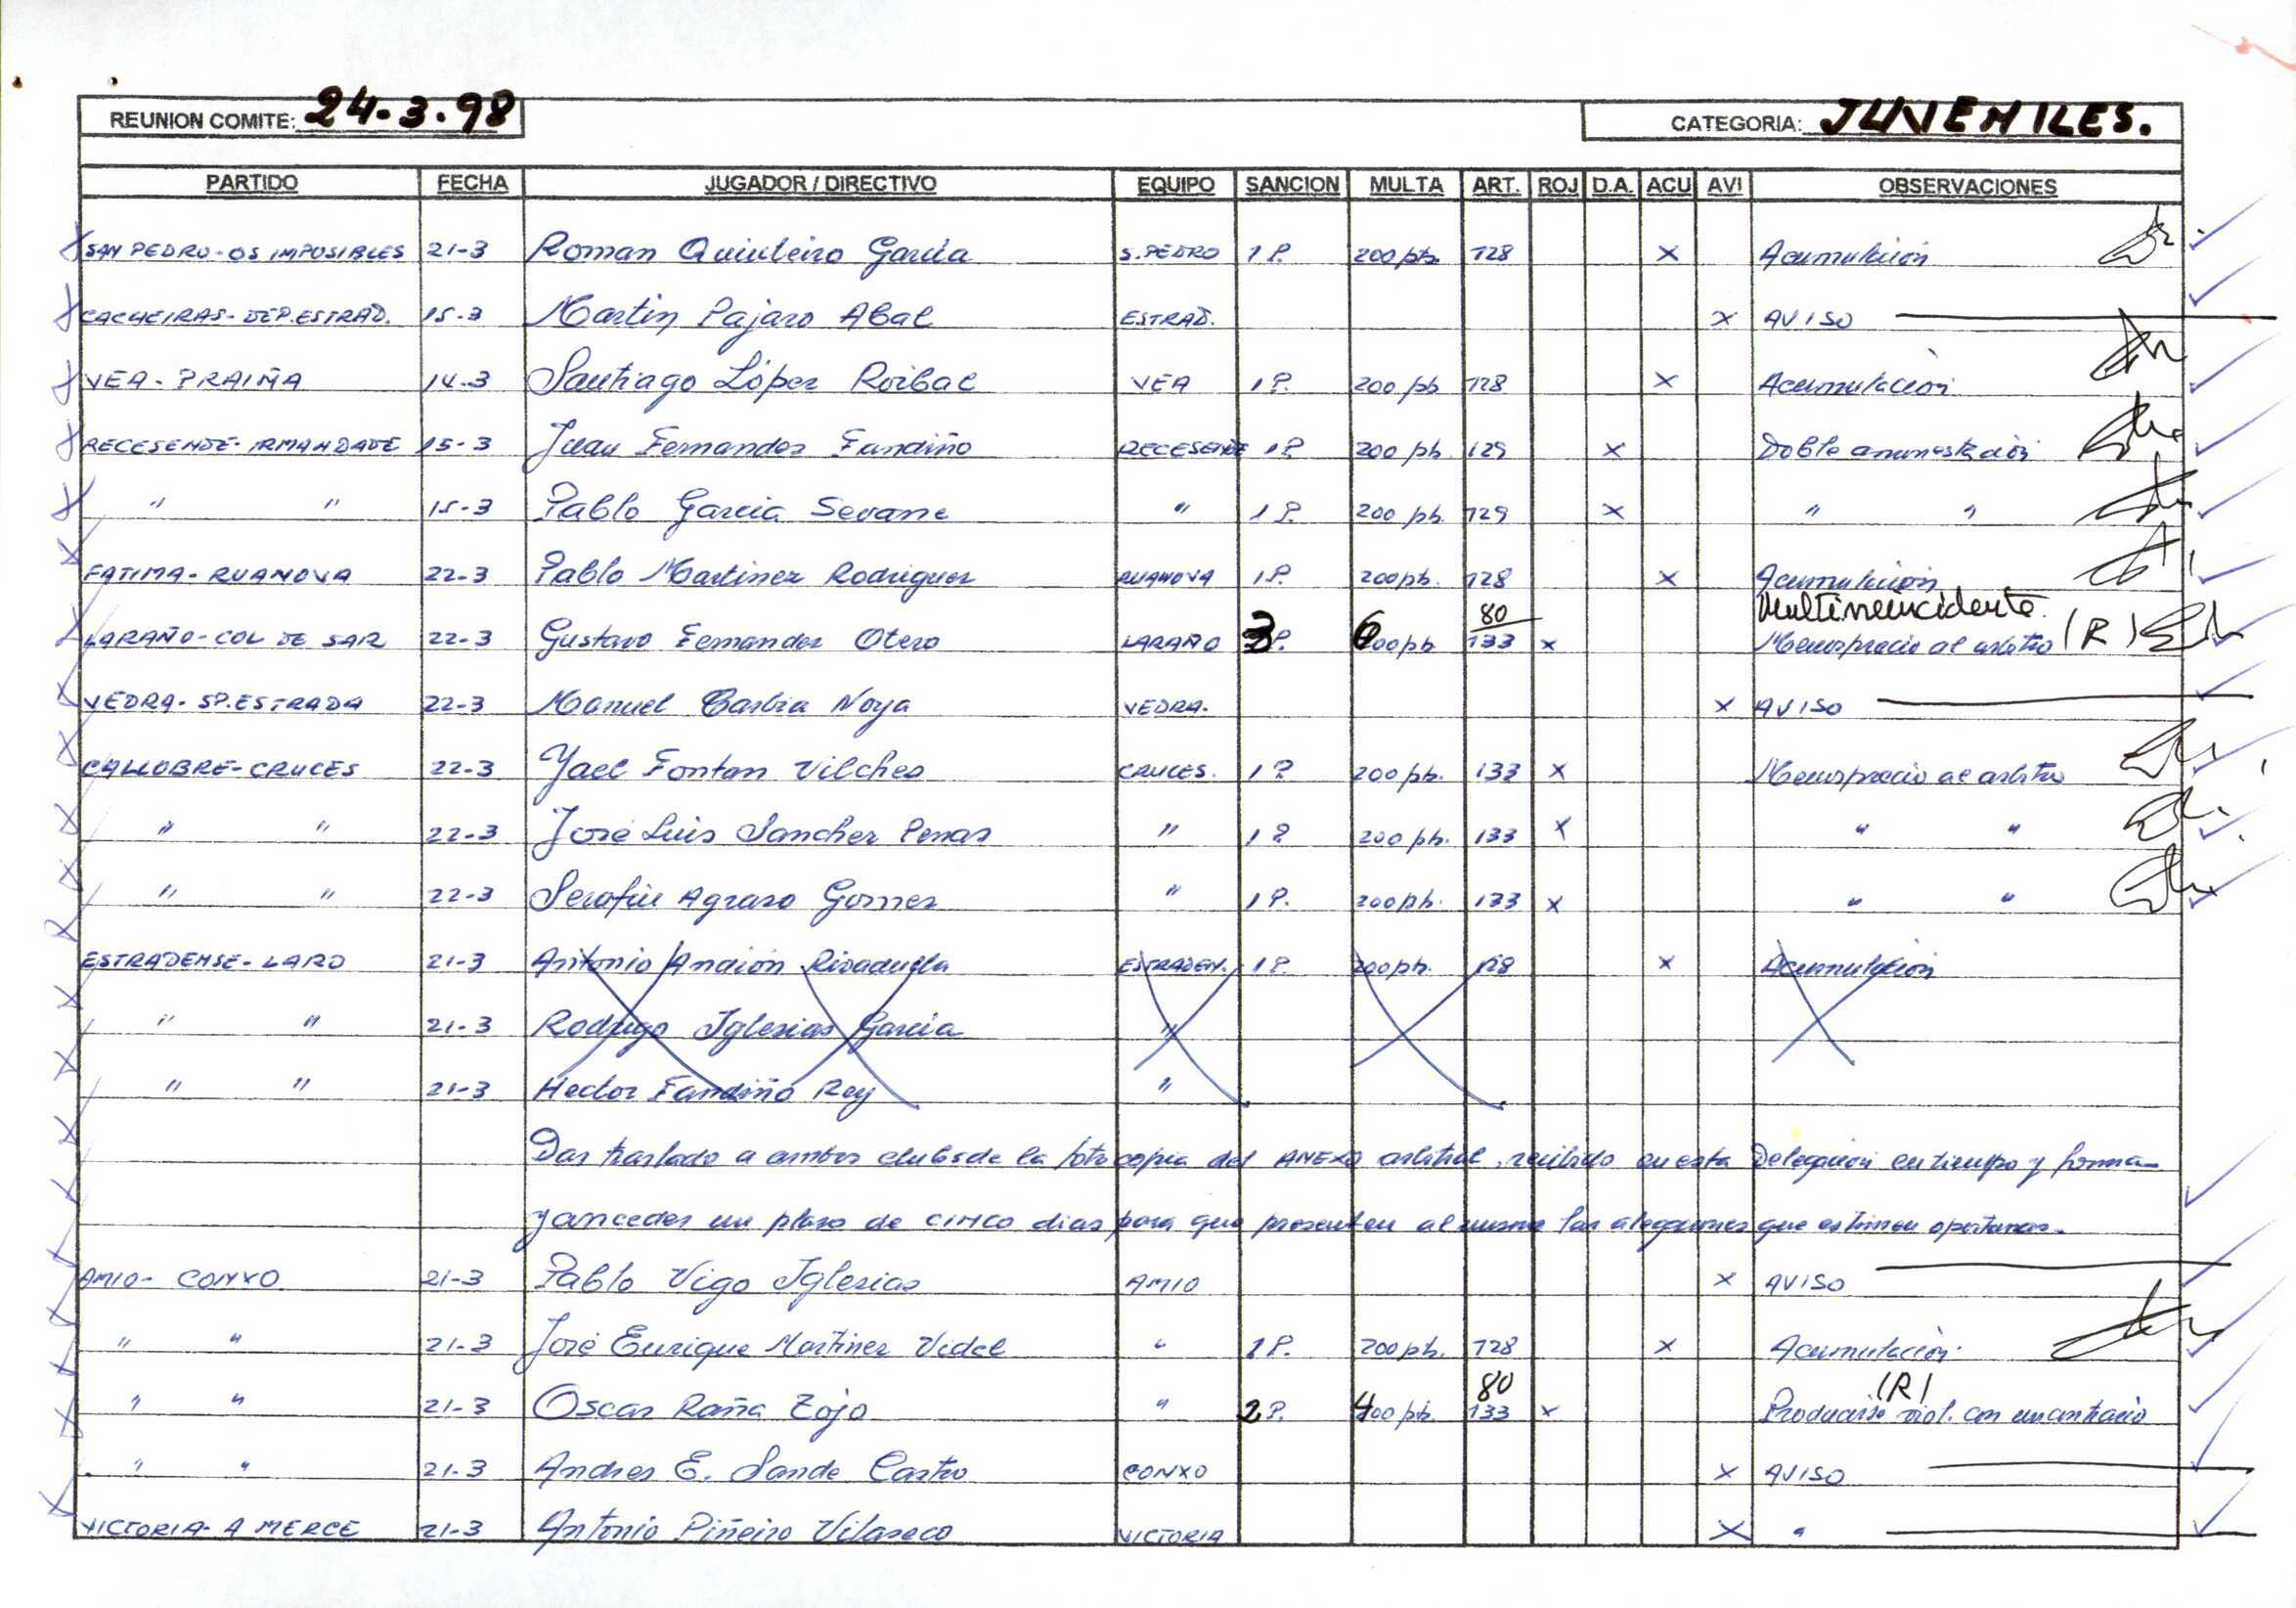 REUNION COMITE: 24-3-98 CATEGORIA: JUVENILES.
PARTIDO FECHA JUGADOR / DIRECTIVO EQUIPO SANCION MULTA ART. ROJ D.A. ACU AVI OBSERVACIONES
SAN PEDRO-OS IMPOSIBLES 21-3 Roman Quinteiro Garcia S.PEDRO 1 P. 200 pts. 128 X Acumulación
CACHEIRAS-DEP.ESTRAD. 15-3 Martin Pajaro Abal ESTRAD. X AVISO
VEA-PRAIÑA 14-3 Santiago López Roibal VEA 1 P. 200 pts 128 X Acumulación
RECESENDE-IRMANDADE 15-3 Juan Fernandez Fandiño RECESENDE 1 P. 200 pts 129 X Doble amonestación
" " 15-3 Pablo Garcia Seoane " 1 P. 200 pts. 129 X " "
FATIMA-RUANOVA 22-3 Pablo Martinez Rodriguez RUANOVA 1 P. 200 pts. 128 X Acumulación
80 Multirreincidente.
LARAÑO-COL DE SAR 22-3 Gustavo Fernandez Otero LARAÑO 3 P. 600 pts 133 X Menosprecio al arbitro (R)
VEDRA-SP.ESTRADA 22-3 Manuel Barbia Noya VEDRA. X AVISO
CALLOBRE-CRUCES 22-3 Yael Fontan Vilches CRUCES. 1 P. 200 pts. 133 X Menosprecio al arbitro
" " 22-3 José Luis Sanchez Penas " 1 P 200 pts. 133 X " "
" " 22-3 Serafin Agraso Gomez " 1 P. 200 pts. 133 X " "
ESTRADENSE-LARO 21-3 Antonio Ancion Rivadugla ESTRADEN. 1 P. 200 pts. 128 X Acumulación
" " 21-3 Rodrigo Iglesias Garcia "
" " 21-3 Hector Fandiño Rey "
Dar traslado a ambos clubs de la fotocopia del ANEXO arbitral, recibido en esta Delegación en tiempo y forma
y conceder un plazo de CINCO dias para que presenten al mismo las alegaciones que estimen oportunas.
AMIO-CONXO 21-3 Pablo Vigo Iglesias AMIO X AVISO
" " 21-3 José Enrique Martinez Vidal " 1 P. 200 pts. 128 X Acumulación.
80 (R)
" " 21-3 Oscar Raña Tojo " 2 P. 400 pts. 133 X Producirse viol. con un contrario
" " 21-3 Andres E. Sande Castro CONXO X AVISO
VICTORIA-A MERCE 21-3 Antonio Piñeiro Vilaseco VICTORIA X "